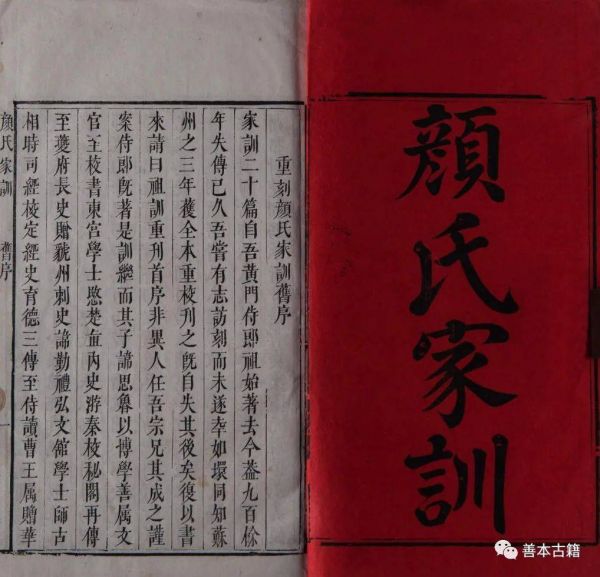 顔氏家訓
重刻顔氏家訓舊序
家訓二十篇自吾黃門侍郎祖始著去今葢九百餘
年失傳已久吾嘗有志訪刻而未遂幸如環同知蘇
州之三年獲全本重校刊之旣自失其後矣復以書
來請曰祖訓重刊首序非異人任吾宗兄其成之謹
案侍郎旣著是訓繼而其子諦思魯以博學善属文
官至校書東宮學士愍楚直内史游秦校秘閣再傳
至夔府長史贈虢州刺史諦勤禮弘文館學士師古
相時司經校定經史育德三傳至侍讀曹王属贈華
顔氏家訓 舊序
善本古籍